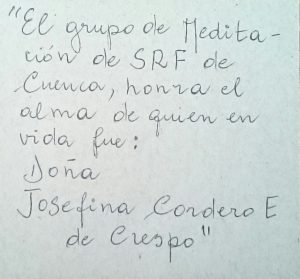 "El grupo de Medita-
ción de SRF de
Cuenca, honra el
alma de quien en
vida fue:
Doña
Josefina Cordero E
de Crespo"